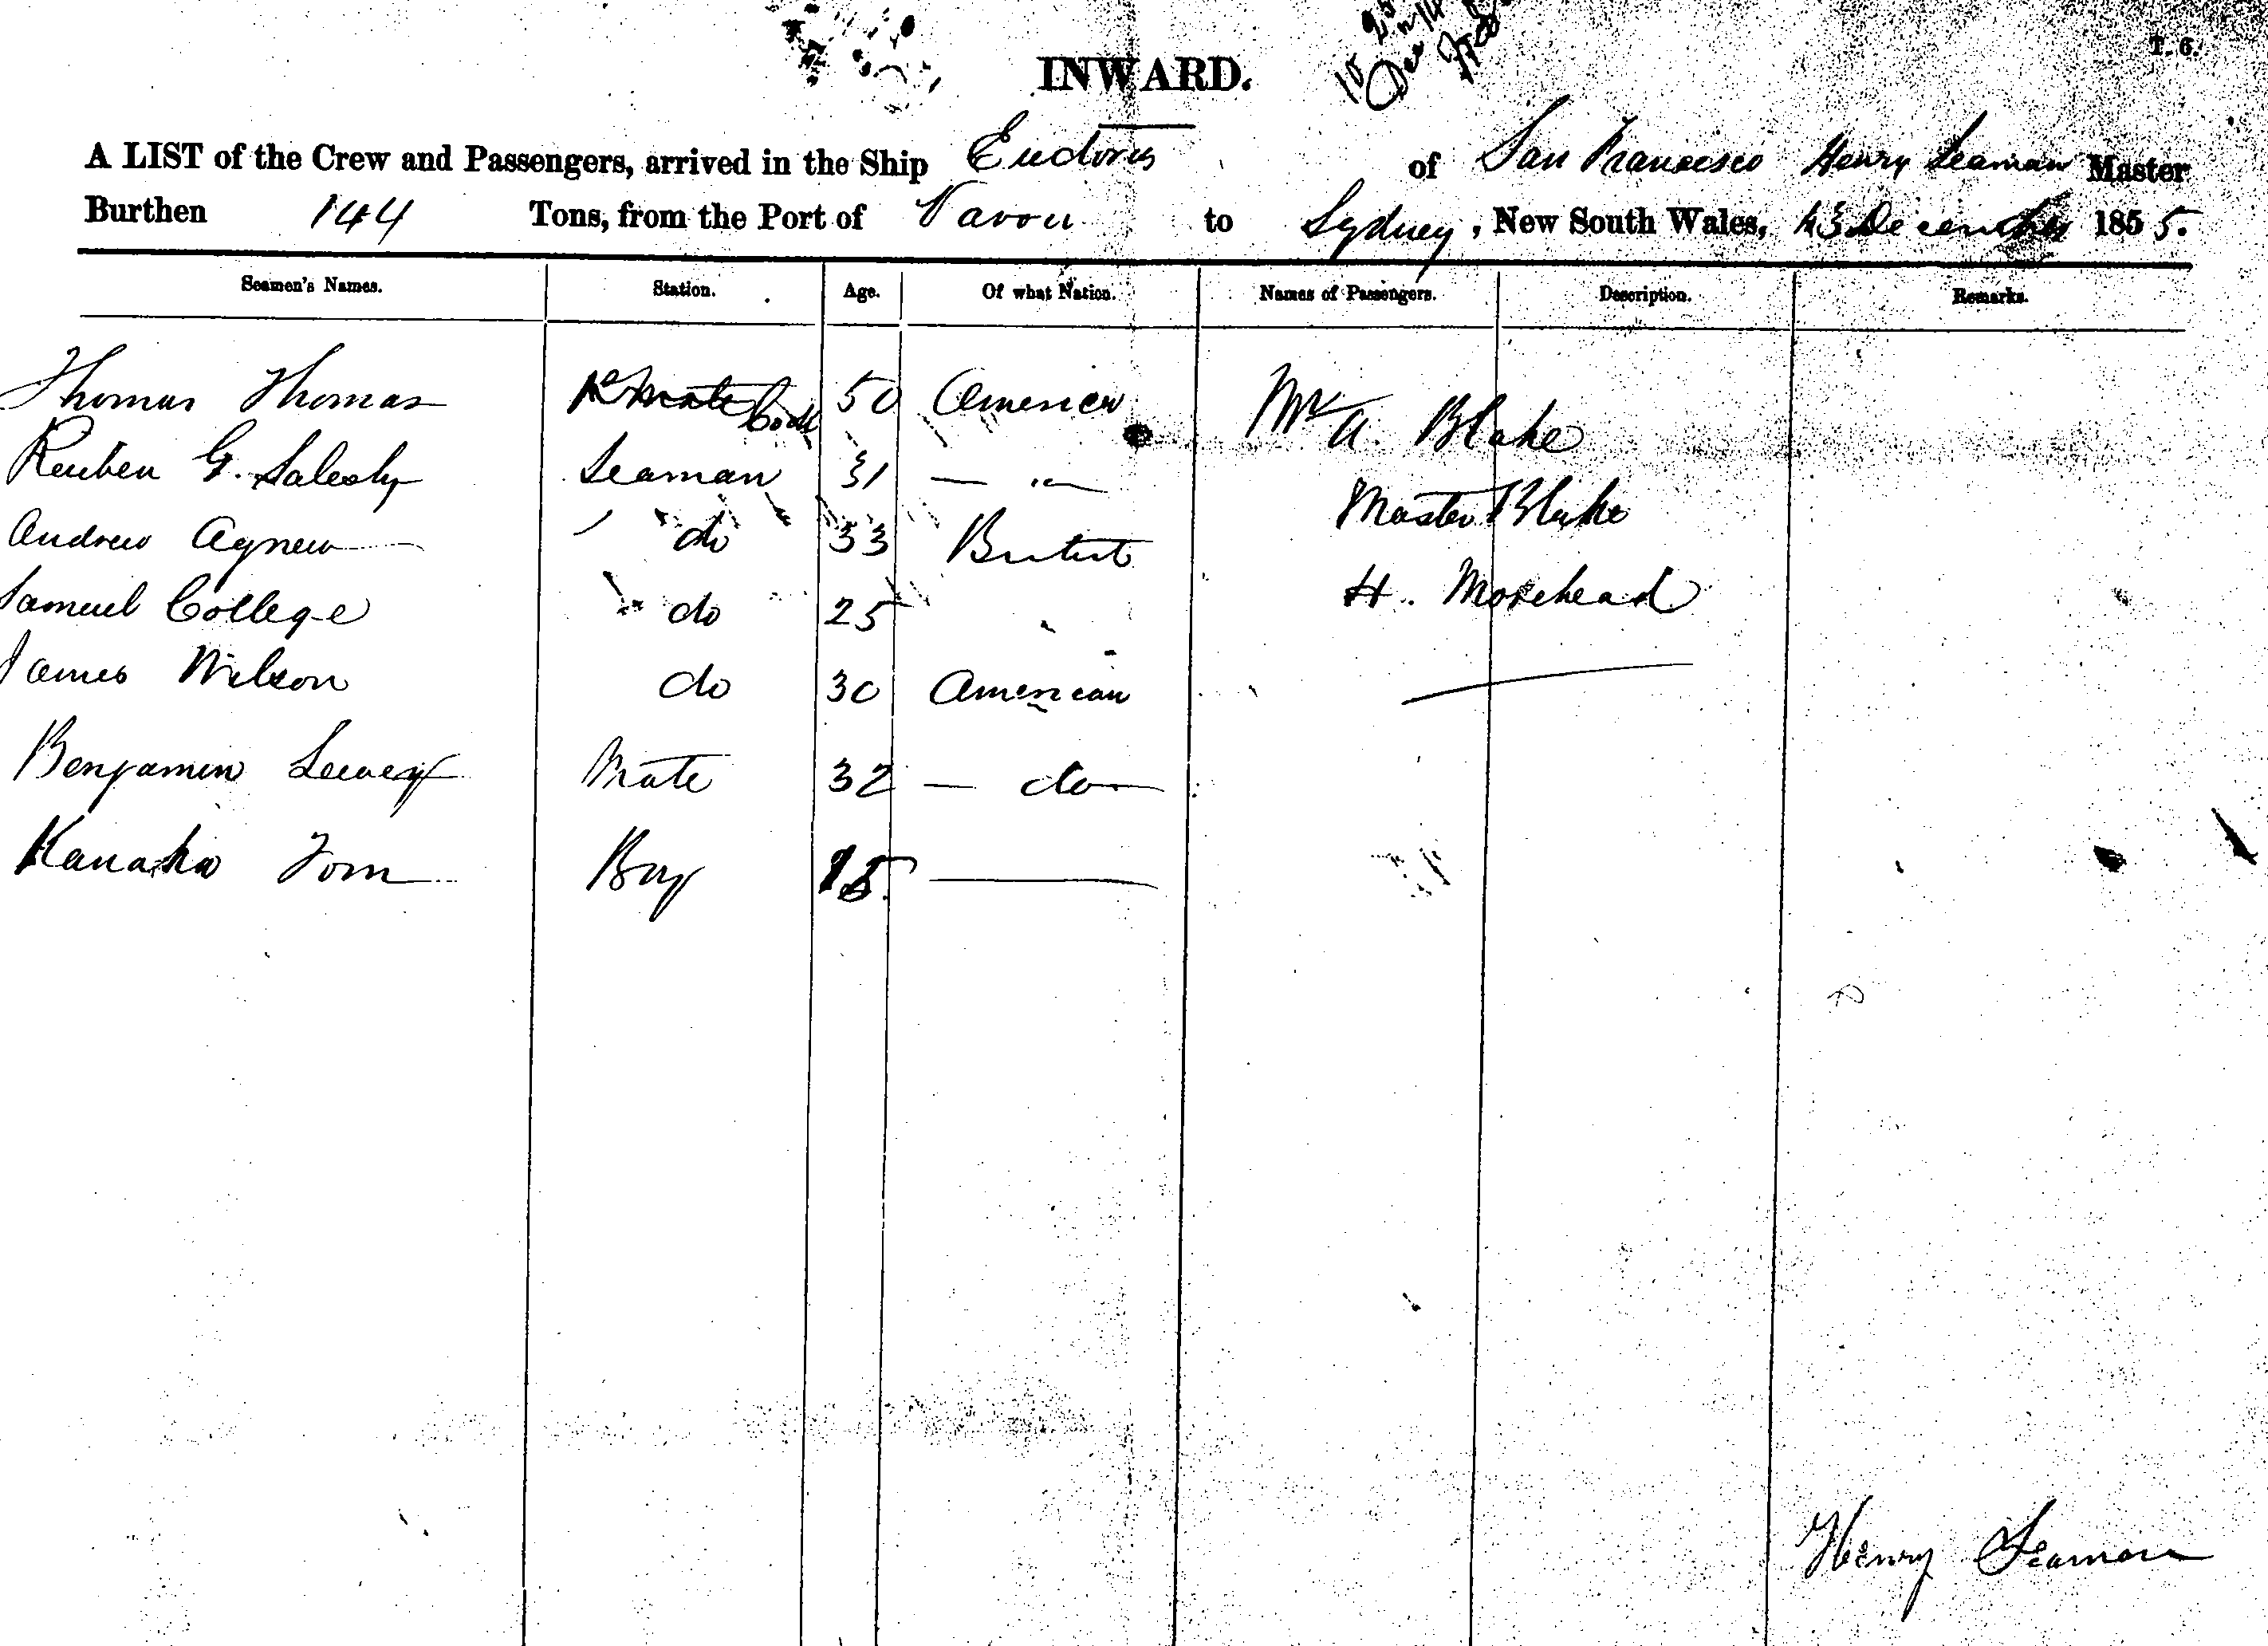 T. 6.
INWARD.
A LIST of the Crew and Passengers, arrived in the Ship Eudorus of San Francisco Henry Seaman Master
Burthen 144 Tons, from the Port of Navou to Sydney, New South Wales, 13 December 1855.
Seamen's Names. Station. Age. Of what Nation. Names of Passengers. Description. Remarks.
Thomas Thomas Cook 50 America Mr A. Blake
Reuben G. Salesby Seaman 31 — " — Master Blake
Andrew Agnew do 33 British
Samuel College do 25 H. Morehead
James Wilson do 30 American
Benjamin Mate 32 — do —
Kanaka Tom Boy 15
Henry Seaman